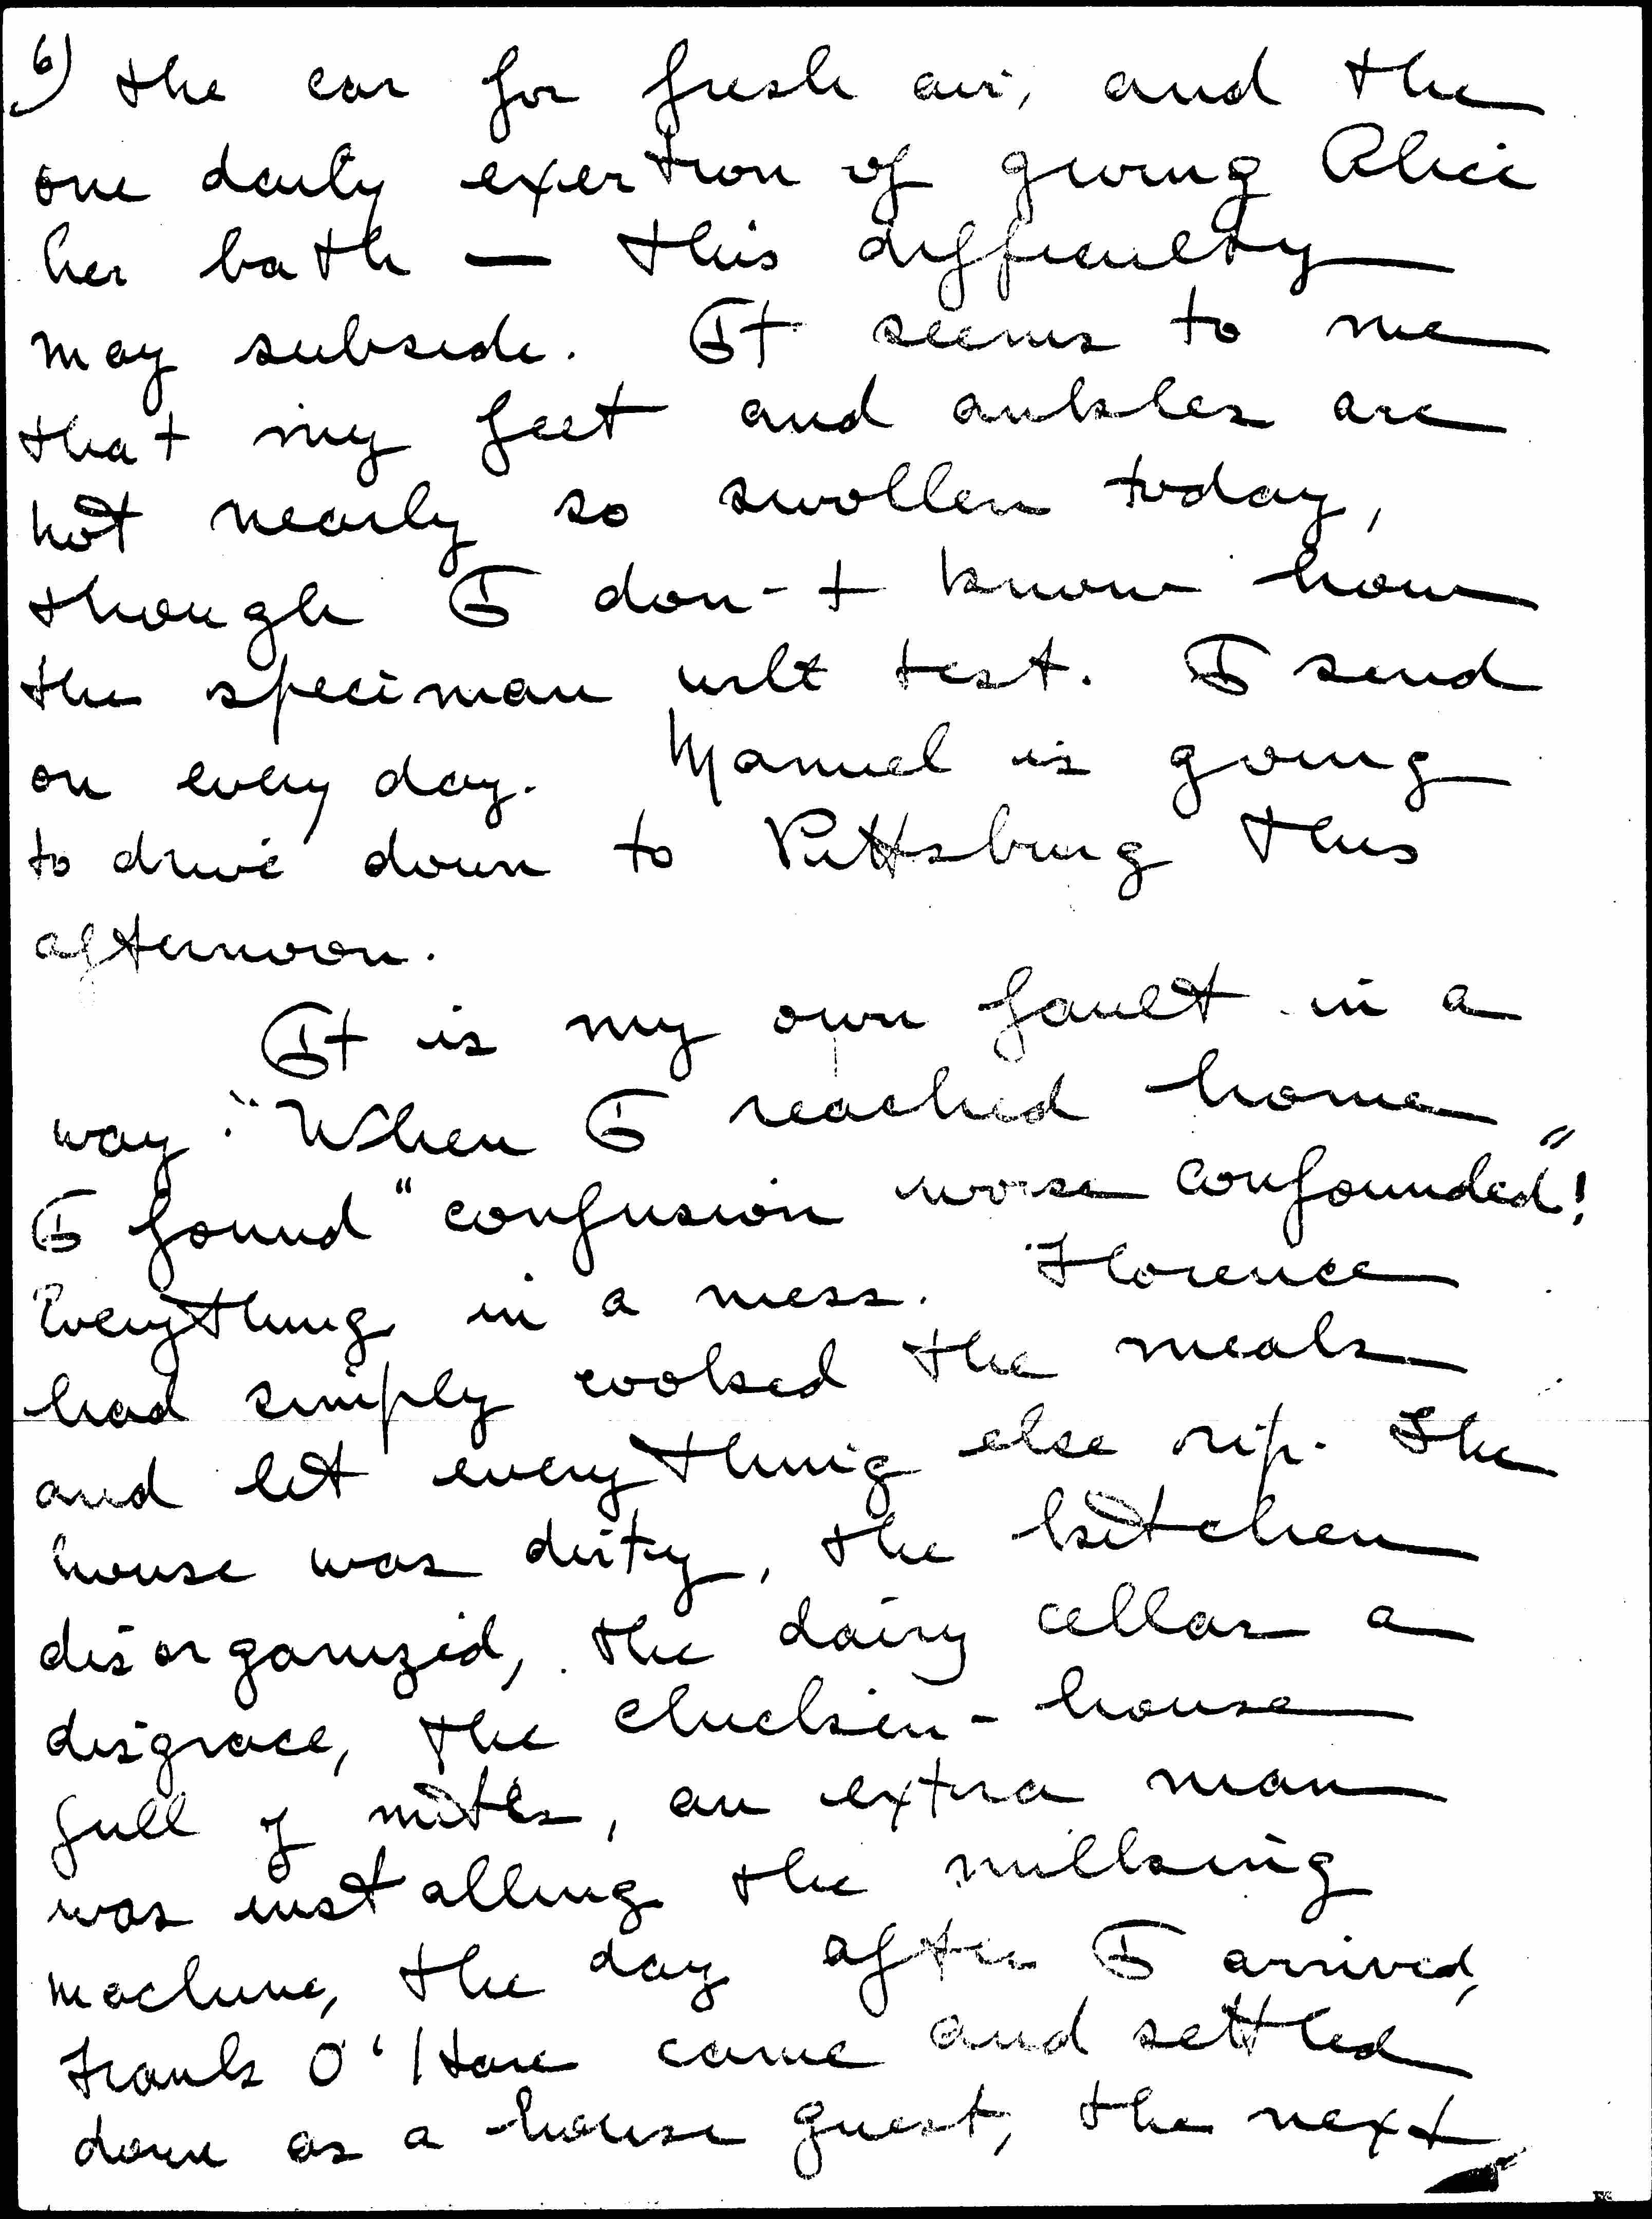 6) the car for fresh air, and the
one daily exertion of giving Alice
her bath — this difficulty
may subside. It seems to me
that my feet and ankles are
not nearly so swollen today,
though I don't know how
the speciman will test. I send
on every day. Manuel is going
to drive down to Pittsburg this
afternoon.
It is my own fault in a
way. When I reached home
I found "confusion worse confounded"!
Everything in a mess. Florence
had simply cooked the meals
and let everything else rip. The
house was dirty, the kitchen
disorganized, the dairy cellar a
disgrace, the chicken-house
full of mites, an extra man
was installing the milking
machine, the day after I arrived,
Frank O'Hare came and settled
down as a house guest, the next